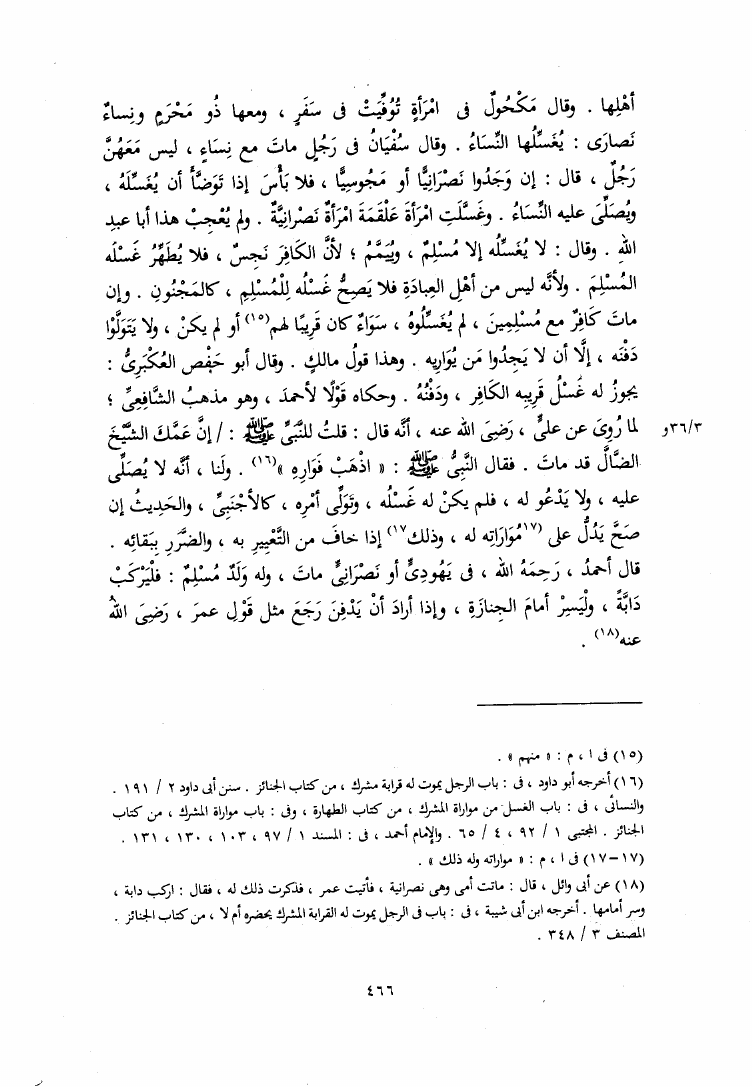 أهْلِها . وقال مَكْحُولٌ فى امْرَأةٍ تُوُفِّيَتْ فى سَفَرٍ ، ومعها ذُو مَحْرَمٍ ونِساءٌ
نَصارَى : يُغَسِّلُها النِّسَاءُ . وقال سُفْيَانُ فى رَجُلٍ ماتَ مع نِساءٍ ، ليس مَعَهُنَّ
رَجُلٌ ، قال : إن وَجَدُوا نَصْرَانِيًّا أو مَجُوسِيًّا ، فلا بَأْسَ إذا تَوَضَّأَ أن يُغَسِّلَهُ ،
ويُصَلِّىَ عليه النِّسَاءُ . وغَسَّلَتِ امْرَأةَ عَلْقَمَةَ امْرَأةٌ نَصْرانِيَّةٌ . ولم يُعْجِبْ هذا أبا عبدِ
اللهِ . وقال : لا يُغَسِّلُه إلا مُسْلِمٌ ، ويُيَمَّمُ ؛ لأنَّ الكافِرَ نَجِسٌ ، فلا يُطَهِّرُ غَسْلُه
المُسْلِمَ . ولأنَّه ليس من أهْلِ العِبادَةِ فلا يَصِحُّ غَسْلُه لِلْمُسْلِمِ ، كالمَجْنُونِ . وإن
ماتَ كافِرٌ مع مُسْلِمِينَ ، لم يُغَسِّلُوهُ ، سَوَاءٌ كان قَرِيبًا لهم(١٥) أو لم يكنْ ، ولا يَتَوَلَّوْا
دَفْنَه ، إلَّا أن لا يَجِدُوا مَن يُوَارِيه . وهذا قولُ مالكٍ . وقال أبو حَفْصٍ العُكْبَرِىُّ :
يجوزُ له غَسْلُ قَرِيبِه الكافِرِ ، ودَفْنُهُ . وحكاه قَوْلًا لأحمدَ ، وهو مذهبُ الشَّافِعِىِّ ؛
لما رُوِىَ عن علىٍّ ، رَضِىَ الله عنه ، أنَّه قال : قلتُ للنَّبِىِّ ﷺ : / إنَّ عَمَّكَ الشَّيْخَ
٣٦/٣و
الضَّالَّ قد ماتَ . فقال النَّبِىُّ ﷺ : « اذْهَبْ فَوَارِهِ »(١٦) . ولَنا ، أنَّه لا يُصَلِّى
عليه ، ولا يَدْعُو له ، فلم يكنْ له غَسْلُه ، وتَوَلِّى أمْرِه ، كالأجْنَبِىِّ ، والحَدِيثُ إن
صَحَّ يَدُلُّ على (١٧مُوَارَاتِه له ، وذلك١٧) إذا خافَ من التَّعْيِيرِ به ، والضَّرَرِ بِبَقائِه .
قال أحمدُ ، رَحِمَهُ الله ، فى يَهُودِىٍّ أو نَصْرَانِىٍّ ماتَ ، وله وَلَدٌ مُسْلِمٌ : فلْيَرْكَبْ
دَابَّةً ، ولْيَسِرْ أمامَ الجِنازَةِ ، وإذا أرادَ أنْ يَدْفِنَ رَجَعَ مثل قَوْلِ عمرَ ، رَضِىَ اللهُ
عنه(١٨) .
(١٥) فى ا ، م : « منهم » .
(١٦) أخرجه أبو داود ، فى : باب الرجل يموت له قرابة مشرك ، من كتاب الجنائز . سنن أبى داود ٢ / ١٩١ .
والنسائى ، فى : باب الغسل من مواراة المشرك ، من كتاب الطهارة ، وفى : باب مواراة المشرك ، من كتاب
الجنائز . المجتبى ١ / ٩٢ ، ٤ / ٦٥ . والإمام أحمد ، فى : المسند ١ / ٩٧ ، ١٠٣ ، ١٣٠ ، ١٣١ .
(١٧-١٧) فى ا ، م : « مواراته وله ذلك » .
(١٨) عن أبى وائل ، قال : ماتت أمى وهى نصرانية ، فأتيت عمر ، فذكرت ذلك له ، فقال : اركب دابة ،
وسر أمامها . أخرجه ابن أبى شيبة ، فى : باب فى الرجل يموت له القرابة المشرك يحضره أم لا ، من كتاب الجنائز .
المصنف ٣ / ٣٤٨ .
٤٦٦